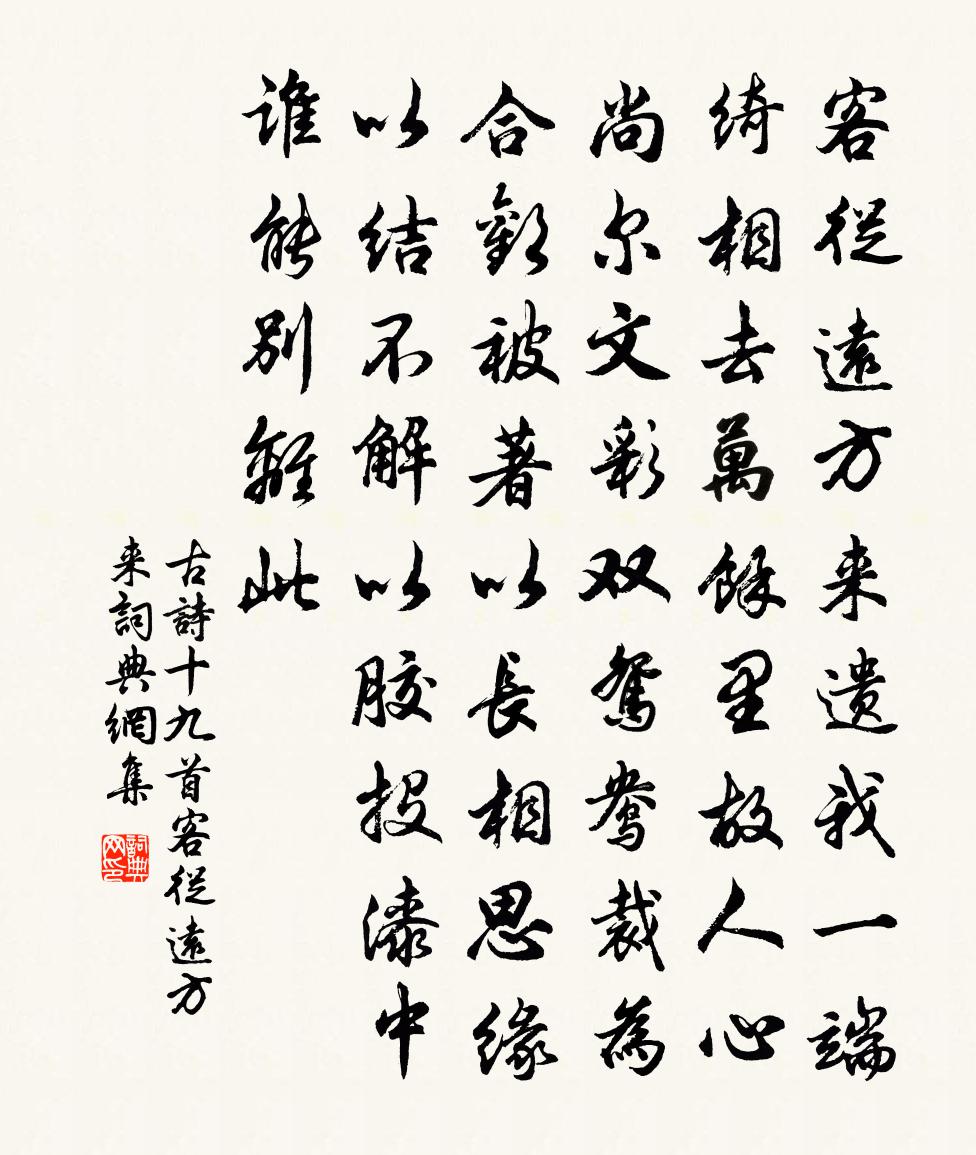 客從遠方来遗我一端
綺相去萬餘里故人心
尚尔文彩双鴛鴦裁為
合歡被著以長相思缘
以结不解以胶投漆中
谁能别離此
古詩十九首客從遠方
来詞典網集
詞典网印